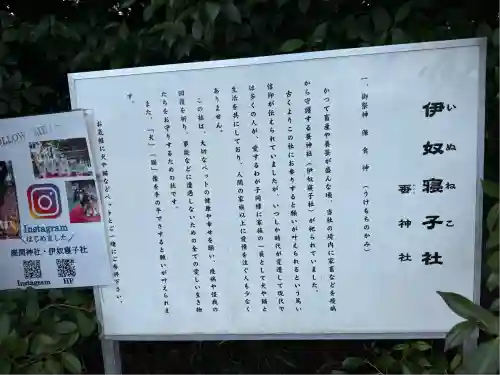 いぬねこ
伊奴寝子社
蚕神社
一、御祭神 保食神 (うけもちのかみ)
かつて畜産や養蚕が盛んな頃、当社の境内に家畜などを疫病
から守護する蚕神社(伊奴寝子社)が祀られていました。
古くよりこの社にお参りすると願いが叶えられるという篤い
信仰が伝えられていましたが、いつしか時代が変遷して現代で
は多くの人が、愛するわが子同様に家族の一員として犬や猫と
生活を共にしており、人間の家族以上に愛情を注ぐ人も少なく
ありません。
この社は、大切なペットの健康や幸せを願い、疾病や怪我の
回復を祈り、事故などに遭遇しないための全ての愛しい生き物
たちをお守りするための社です。
また、「犬」「猫」像を手の平でさすると願いが叶えられま
す。
お気軽に犬や猫などペットとご一緒にご参拝下さい。
FOLLOW ME!
Instagram
はじめました
座間神社・伊奴寝子社
Instagram
HP